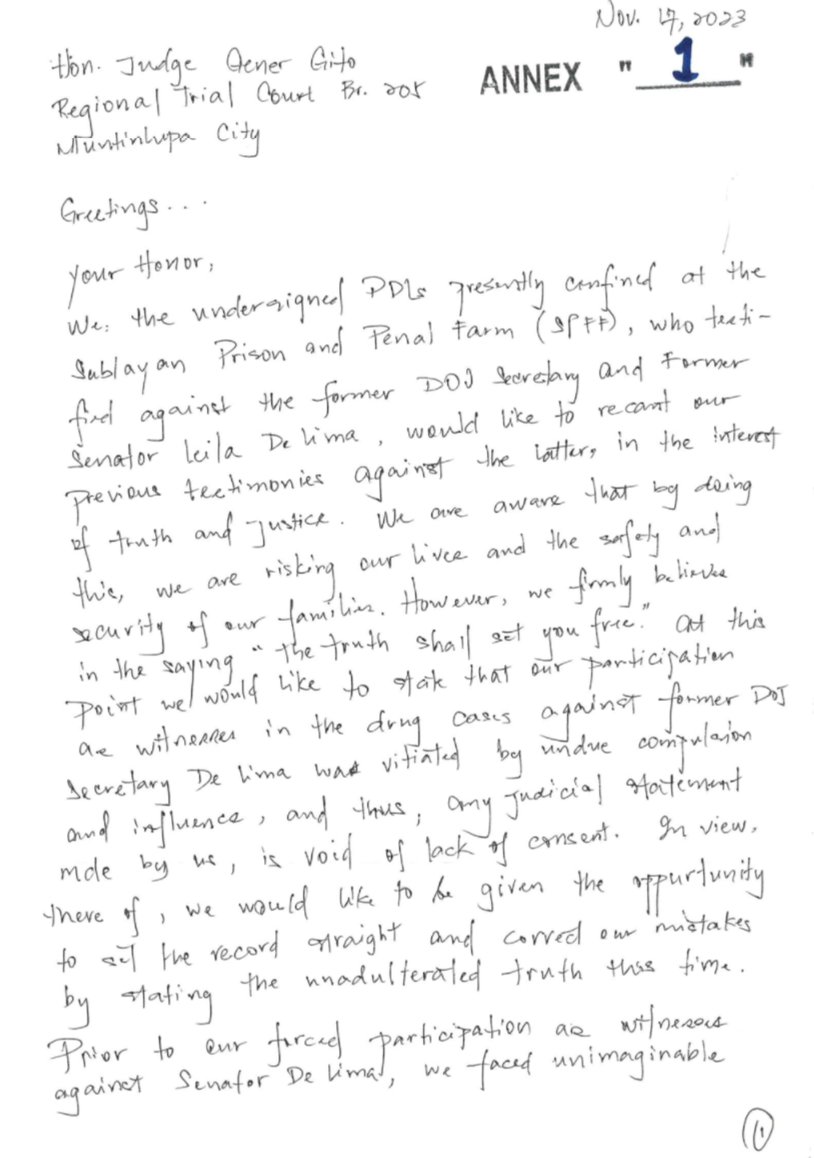 Nov. 17, 2023
Hon. Judge Gener Gito
Regional Trial Court Br. 205
Muntinlupa City
ANNEX " 1 "
Greetings...
Your Honor,
We, the undersigned PDLs presently confined at the
Sablayan Prison and Penal Farm (SPPF), who testi-
fied against the former DOJ Secretary and Former
Senator Leila De Lima, would like to recant our
previous testimonies against the latter, in the interest
of truth and justice. We are aware that by doing
this, we are risking our lives and the safety and
security of our families. However, we firmly believe
in the saying "the truth shall set you free." At this
point we would like to state that our participation
as witnesses in the drug cases against former DOJ
Secretary De Lima was vitiated by undue compulsion
and influence, and thus, any judicial statement
mde by us, is void of lack of consent. In view,
there of, we would like to be given the oppurtunity
to set the record straight and correct our mistakes
by stating the unadulterated truth this time.
Prior to our forced participation as witnesses
against Senator De Lima, we faced unimaginable
1